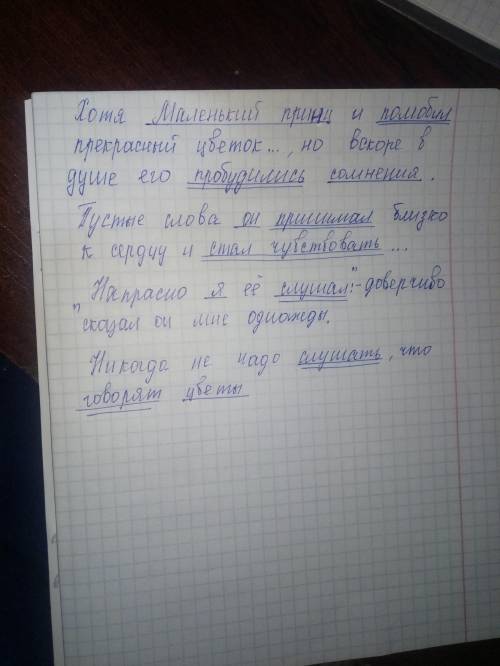 Хотя Маленький принц и полюбил
прекрасный цветок..., но вскоре в
душе его пробудились сомнения.
Пустые слова он принимал близко
к сердцу и стал чувствовать...
"Напрасно я её слушал:"-доверчиво
сказал он мне однажды.
Никогда не надо слушать, что
говорят цветы